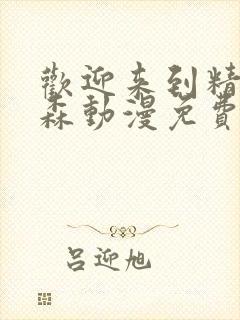 歡迎来到精
森動漫免費
吕迎旭